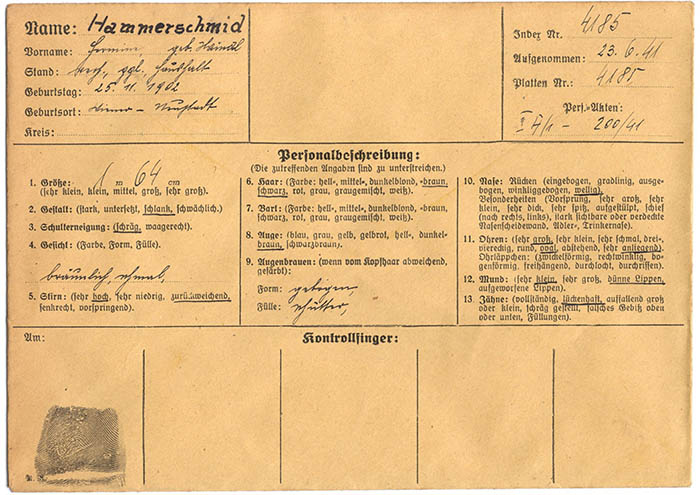 Name: Hammerschmid
Vorname: Hermine, geb. Haindl
Stand: verh., ggl., Haushalt
Geburtstag: 25. 11. 1902
Geburtsort: Wiener-Neustadt
Kreis:
Index Nr. 4185
Aufgenommen: 23. 6. 41
Platten Nr.: 4185
Pers.-Akten:
200/41
Personalbeschreibung:
(Die zutreffenden Angaben sind zu unterstreichen.)
1. Größe: 1 m 64 cm
(sehr klein, klein, mittel, groß, sehr groß).
2. Gestalt: (stark, untersetzt, schlank, schwächlich.)
3. Schulterneigung: (schräg, waagerecht.)
4. Gesicht: (Farbe, Form, Fülle).
bräunlich, schmal,
5. Stirn: (sehr hoch, sehr niedrig, zurückweichend,
senkrecht, vorspringend).
6. Haar: (Farbe: hell-, mittel-, dunkelblond, -braun,
schwarz, rot, grau, graugemischt, weiß).
7. Bart: (Farbe: hell-, mittel-, dunkelblond, -braun,
schwarz, rot, grau, graugemischt, weiß).
8. Auge: (blau, grau, gelb, gelbrot, hell-, dunkel-
braun, schwarzbraun).
9. Augenbrauen: (wenn vom Kopfhaar abweichend,
gefärbt):
Form: gebogen,
Fülle: schütter,
10. Nase: Rücken (eingebogen, gradlinig, ausge-
bogen, winkliggebogen, wellig).
Besonderheiten (Vorsprung, sehr groß, sehr
klein, sehr dick, sehr spitz, aufgestülpt, schief
(nach rechts, links), stark sichtbare oder verdeckte
Nasenscheidewand, Adler-, Trinkernase).
11. Ohren: (sehr groß, sehr klein, sehr schmal, drei-,
viereckig, rund, oval, abstehend, sehr anliegend).
Ohrläppchen: (zwickelförmig, rechtwinklig, bo-
genförmig, freihängend, durchlocht, durchrissen).
12. Mund: (sehr klein, sehr groß, dünne Lippen,
aufgeworfene Lippen).
13. Zähne: (vollständig, lückenhaft, auffallend groß
oder klein, schräg gestellt, falsches Gebiß oben
oder unten, Füllungen).
Am:
Kontrollfinger: